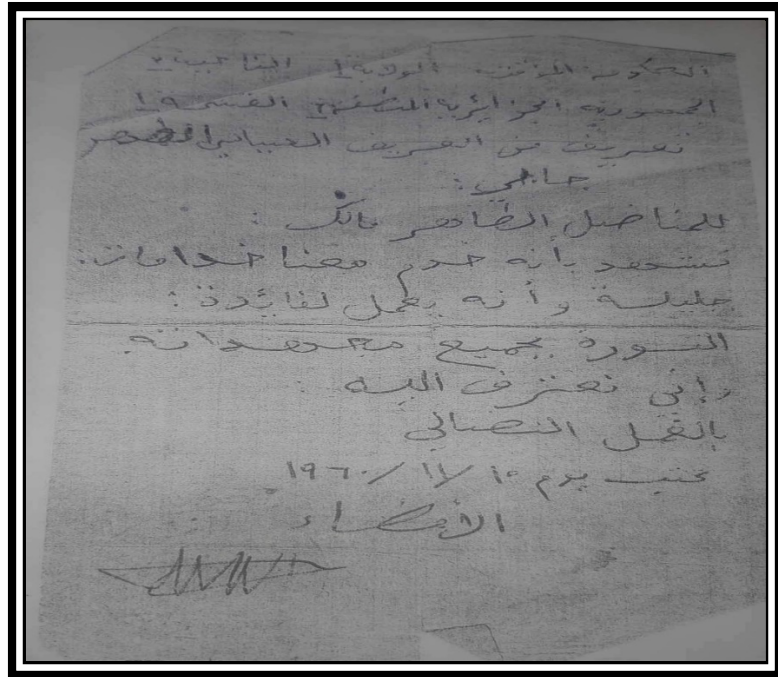 الحكومة المؤقتة الولاية 1 الناحية 2
الجمهورية الجزائرية المنطقة القسمة 1
تعريف من العريف السياسي
جابلي:
للمناضل الطاهر مالك:
نشهد بأنه خدم معنا خدامات:
جليلة وأنه يعمل لفائدة:
الثورة بجميع مجهوداته
وإني نعترف اليه
بالعمل النضالي
كتب يوم ١٥ /١١/ ١٩٦٠
الأمضاء